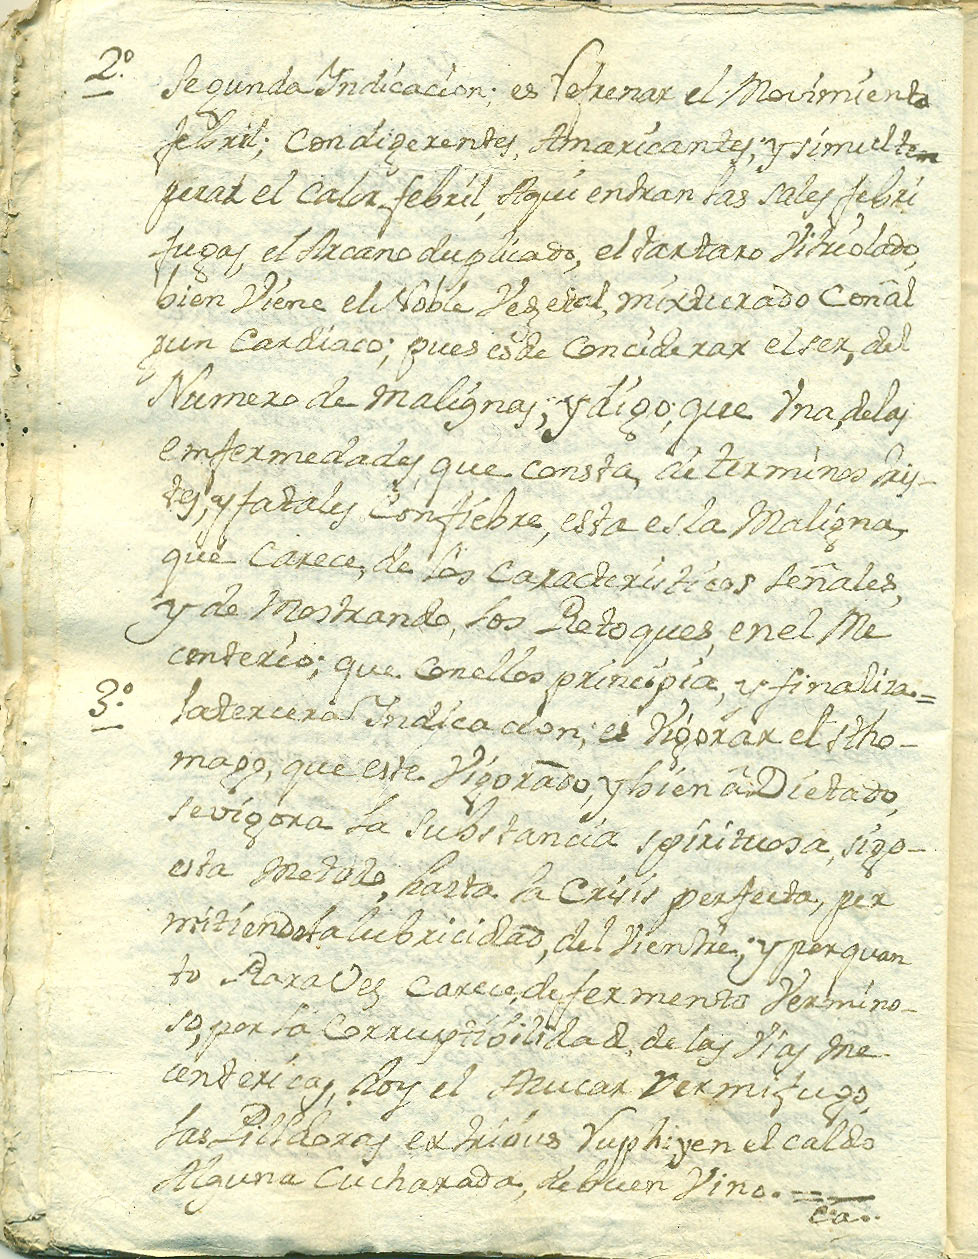 2º. Segunda Indicacion; es Refrenar el Movimiento
febril; con digerentes, Amaricantes; y simul tem
perar el calor febril, Aqui entran las sales febri
fugas, el Arcano duplicado, el tartaro Vitriolado,
bien Viene el Noble Vegetal, mixturado Con al
gun Cardiaco; pues es de Conciderar el ser, del
Numero de malignas; y digo; que Una, de las
enfermedades, que consta, de terminos tris-
tes, y fatales Con fiebre, esta es la Maligna,
que Carece, de los Caracteristicos Señales,
y de Mostrando, los Retoques, en el Me
centerio; que con ellos principia, y finaliza.=
3º. la tercera Indicacion; es Vigorar el stho-
mago, que este Vigorado, y bien â Dietado,
se vigora la Substancia spirituosa, sigo-
esta Metodo, hasta la Crisis perfecta, per
mitiendo la lubricidad, del Vientre; y por quan
to Rara Vez Carece, de fermento Vermino-
so, por la Corruptibilidad, de las Vias Me
centericas, doy el Azucar Vermifugo,
las Pildoras ex tribus Ruphi, y en el caldo
Alguna Cucharada, de buen Vino.=